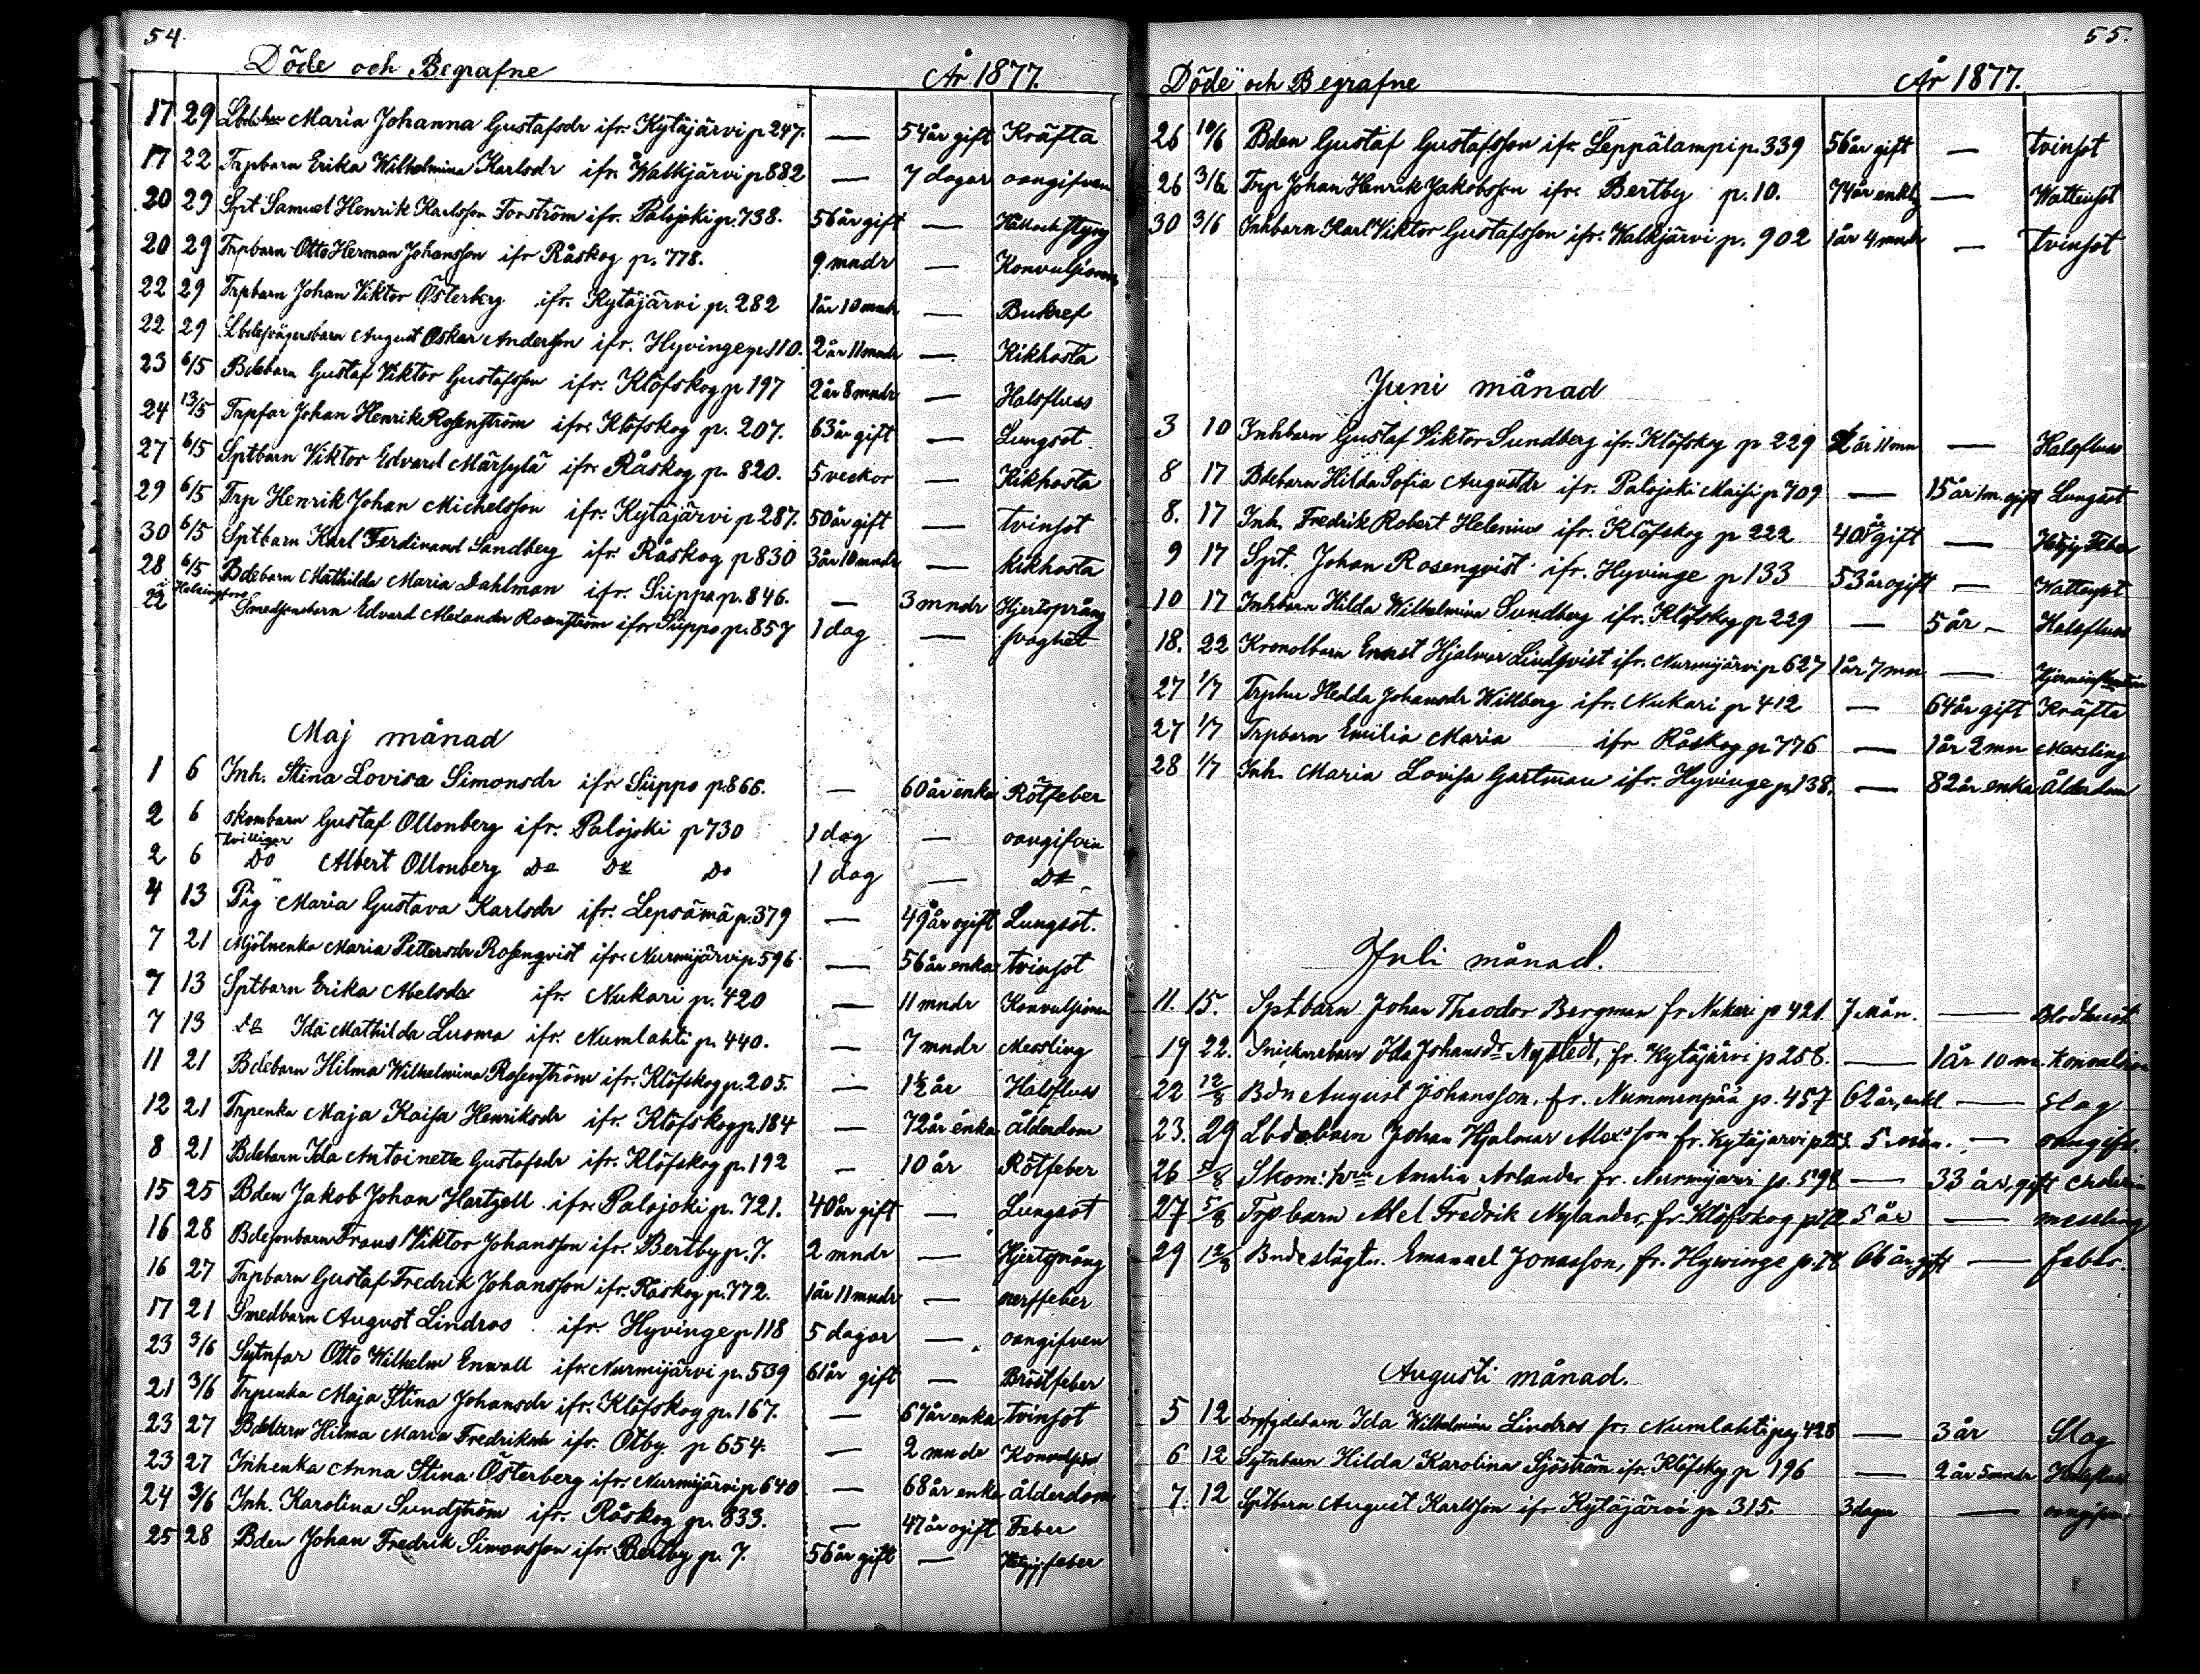 54.
Döde och Begrafne År 1877.
17 29 Maria Johanna Gustafsdr ifr. Kytäjärvi p 247. — 54 år gift Kräfta
17 22 Trpbarn Erika Wilhelmina Karlsdr ifr. Walkjärvi p 882 — 7 dagar oangifven
20 29 Spt Samuel Henrik Karlsson Forström ifr. Palojoki p. 738. 56 år gift — Håll och styng
20 29 Trpbarn Otto Herman Johansson ifr Råskog p. 778. 9 mndr — Konvulsioner
22 29 Trpbarn Johan Viktor Österberg ifr. Kytäjärvi p. 282 1 år 10 mndr — Bukref
22 29 August Oskar Andersson ifr. Hyvinge p. 110. 2 år 11 mndr — Kikhosta
23 6/5 Bdebarn Gustaf Viktor Gustafsson ifr. Klöfskog p 197 2 år 8 mndr — Halsfluss
24 13/5 Trpfar Johan Henrik Rosenström ifr. Klöfskog p. 207. 63 år gift — Lungsot
27 6/5 Sptbarn Viktor Edvard Märsylä ifr. Råskog p. 820. 5 veckor — Kikhosta
29 6/5 Trp Henrik Johan Michelsson ifr. Kytäjärvi p 287. 50 år gift — tvinsot
30 6/5 Sptbarn Karl Ferdinand Sandberg ifr Råskog p 830 3 år 10 mndr — kikhosta
28 6/5 Bdebarn Mathilda Maria Dahlman ifr. Siippo p. 846. — 3 mndr Hjertsprång
22 i Helsingfors Smedsonbarn Edvard Alexander Rosenström ifr Siippo p. 857 1 dag — svaghet
Maj månad
1 6 Inh. Stina Lovisa Simonsdr ifr Siippo p 866. — 60 år enka Rötfeber
2 6 Skombarn Gustaf Ollonberg ifr. Palojoki p 730 1 dag — oangifven
tvillingar
2 6 Do Albert Ollonberg Do Do Do 1 dag — Do
4 13 Pig Maria Gustava Karlsdr ifr. Lepsämä p. 379 — 49 år ogift Lungsot.
7 21 Mjölnenka Maria Pettersdr Rosenqvist ifr. Nurmijärvi p 596 — 56 år enka tvinsot
7 13 Sptbarn Erika Abelsdr ifr. Nukari p. 420 — 11 mndr Konvulsioner
7 13 Do Ida Mathilda Luoma ifr. Numlahti p. 440. — 7 mndr Messling
11 21 Bdebarn Hilma Wilhelmina Rosenström ifr. Klöfskog p. 205. — 1½ år Halsfluss
12 21 Trpenka Maja Kaisa Henriksdr ifr. Klöfskog p. 184 — 72 år enka ålderdom
8 21 Bdebarn Ida Antoinette Gustafsdr ifr. Klöfskog p. 192 — 10 år Rötfeber
15 25 Bden Jakob Johan Hartzell ifr. Palojoki p. 721. 40 år gift — Lungsot
16 28 Bdesonbarn Frans Viktor Johansson ifr. Bertby p. 7. 2 mndr — Hjertsprång
16 27 Trpbarn Gustaf Fredrik Johansson ifr. Råskog p. 772. 1 år 11 mndr — nerffeber
17 21 Smedbarn August Lindros ifr. Hyvinge p 118 5 dagar — oangifven
23 3/6 Sytnfar Otto Wilhelm Enwall ifr. Nurmijärvi p. 539 61 år gift — Bröstfeber
21 3/6 Trpenka Maja Stina Johansdr ifr. Klöfskog p. 167. — 67 år enka tvinsot
23 27 Bdebarn Hilma Maria Fredriksdr ifr. Otby p 654. — 2 mndr
23 27 Inhenka Anna Stina Österberg ifr. Nurmijärvi p 640 — 68 år enka ålderdom
24 3/6 Inh. Karolina Sundström ifr. Råskog p. 833. — 47 år ogift Feber
25 28 Bden Johan Fredrik Simonsson ifr. Bertby p. 7. 56 år gift —
55.
Döde och Begrafne År 1877.
26 10/6 Bden Gustaf Gustafsson ifr. Leppälampi p. 339 56 år gift — tvinsot
26 3/6 Trp Johan Henrik Jakobsson ifr. Bertby p. 10. 74 år enkl — Wattensot
30 3/6 Inhbarn Karl Viktor Gustafsson ifr. Walkjärvi p. 902 1 år 4 mndr — tvinsot
Juni månad
3 10 Inhbarn Gustaf Viktor Sundberg ifr. Klöfskog p 229 år 11 mn — Halsfluss
8 17 Bdebarn Hilda Sofia Augustdr ifr. Palojoki p 709 — 15 år 1 m. ogift Lungsot
8. 17 Inh. Fredrik Robert Helenius ifr. Klöfskog p 222 40 år gift —
9 17 Spt. Johan Rosenqvist ifr. Hyvinge p 133 53 år ogift — Wattensot
10 17 Inhbarn Hilda Wilhelmina Sundberg ifr. Klöfskog p 229 — 5 år — Halsfluss
18. 22 Kronolbarn Ernst Hjalmar Lindqvist ifr. Nurmijärvi p 627 1 år 7 mn —
27 1/7 Trphu Hedda Johansdr Willberg ifr. Nukari p 412 — 64 år gift Kräfta
27 1/7 Trpbarn Emilia Maria ifr Råskog p 776 — 1 år 2 mn Messling
28 1/7 Inh. Maria Lovisa Gartman ifr. Hyvinge p 138. — 82 år enka Ålderdom
Juli månad.
11. 15. Sptbarn Johan Theodor Bergman fr Nukari p 421 7 mån. —
19 22. Snickarebarn Ida Johansdr Nystedt, fr. Kytäjärvi p 258. — 1 år 10 m. Konvulsion
22 12/8 Bdn August Johansson, fr. Nummenpää p. 457 62 år, enkl. — Slag
23. 29 Lbdebarn Johan Hjalmar Alexsson fr. Kytäjärvi 5 mån. — oangifv.
26 5/8 Skom: hru Amalia Arlander fr. Nurmijärvi p. 598 — 33 år, gift
27 5/8 Trpbarn Axel Fredrik Nylander, fr. Klöfskog 5 år — messling
29 12/8 Emanuel Jonasson, fr. Hyvinge 66 år gift — feber.
Augusti månad.
5 12 Ida Wilhelmina Lindros fr. Numlahti pag 428 — 3 år Slag
6 12 Sytnbarn Hilda Karolina Sjöström ifr. Klöfskog p 196 — 2 år 5 mndr Halsfluss
7. 12 Sptbarn August Karlsson ifr Kytäjärvi p 315. 3 dagar — oangifven